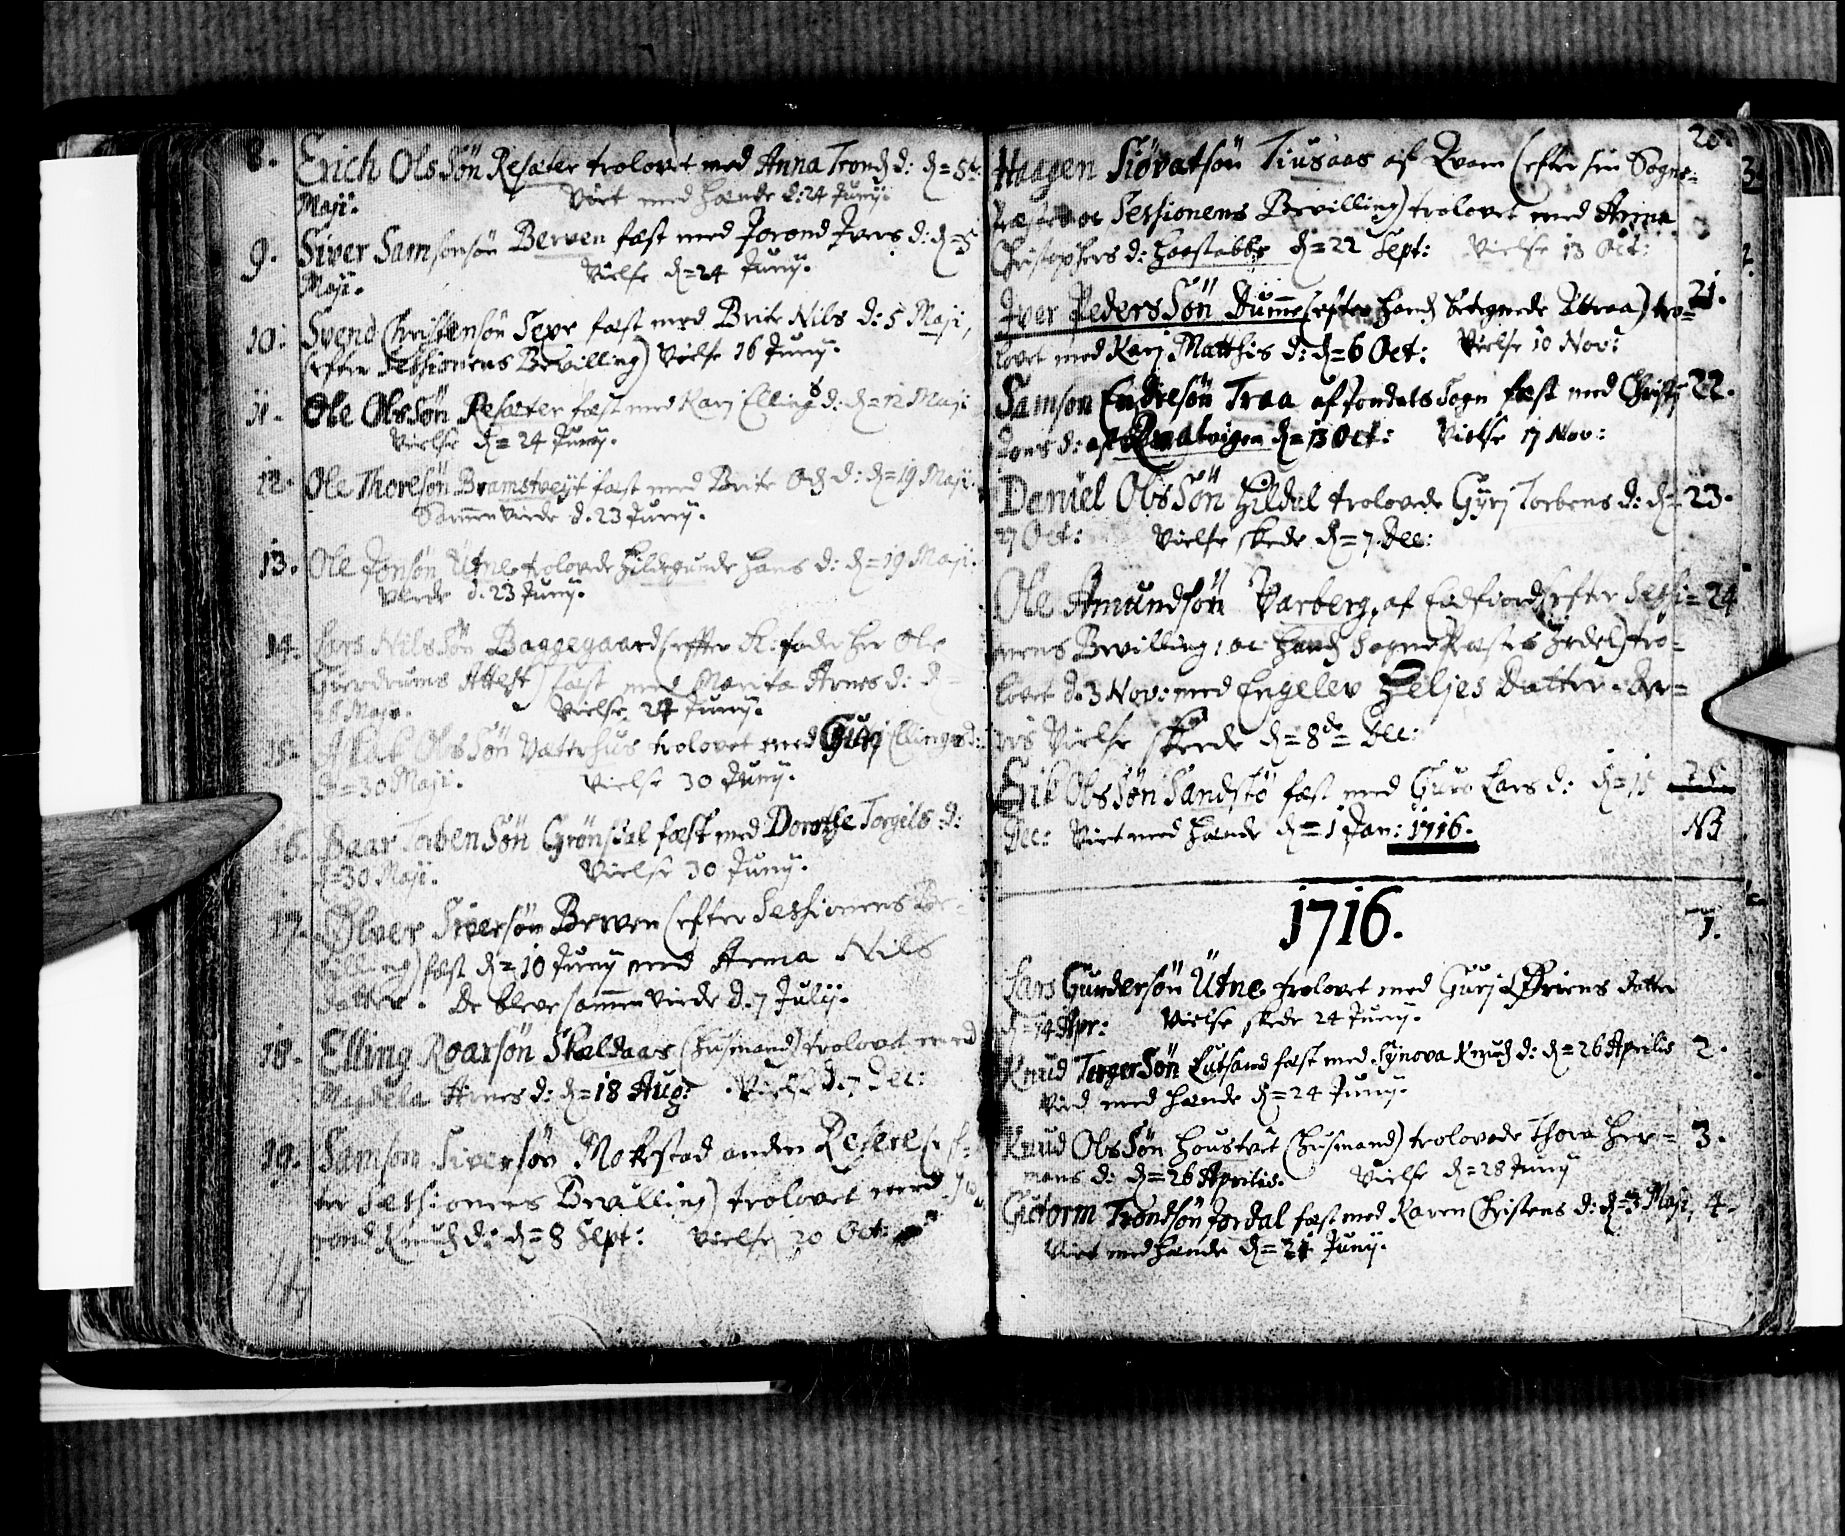 8. Erich OlsSøn Resæter trolovet med Anna Trond d: d= 5te
Maji. Viet med hænde d: 24 Junij.
9. Siver Samsonsøn Berven fæst med Jorond Ivers d: d=5
Maji. Vielse d=24 Junij.
10. Svend Christensøn Sexe fæst med Brite Nils d: 5 Maji,
(efter Sessionens Bevilling) Vielse 16 Junij.
11. Ole OlsSøn Resæter fæst med Kari Ellings d: d=12 Maji
Vielse d= 24 Junij.
12. Ole Thoresøn Bramstveyt fæst med Brite Od d: d=19 Maji.
Sammen Viede d. 23 Junij.
13. Ole Jonsøn Utne trolovede Hildegunde Hans d: d=19 Maji.
Viede d. 23 Junij.
14. Lars NilsSøn Baagegaard (effter H: fader her Ole
Guerdrums Attest) fæst med Marita Arnes d: d=
Maji. Vielse 24 Junij.
15. OlsSøn Vættehus trolovet med Guri Ellings d:
d=30 Maji. Vielse 30 Junij.
16. Baar TorbenSøn Grønsdal fæst med Dorothe Torgils d:
d=30 Maji. Vielse 30 Junij.
17. Ølver Siversøn Berven (efter Sessionens Be-
villing) fæst d=10 Junij med Anna Nils
datter. De bleve sammen Viede d. 7 Julij.
18. Elling Roarsøn Skeldaas (Husmand) trolovet med
Magdela Arnes d: d=18 Aug: Vielse d. 7 Dec:
19. Samson Siversøn Mokestad anden Reserve (ef-
ter Sessionens Bevilling) trolovet med Jo-
rond Knud d: d=8 Sept: Vielse 20 Oct:
Haagen Siøvatsøn Tiusaas af Qvam (efter sin Sogne- 20.
Præstes oc Sessionens Bevilling) trolovet med Anna
Christophers d: Haastabbe d=22 Sept: Vielse 13 Oct:
Iver PedersSøn Dumme (efter hand betegnede Attraa) tro- 21.
lovet med Kari Matthis d: d=6 Oct: Vielse 10 Nov:
Samson Endresøn Traa af Jondals Sogn fæst med Christi 22.
Jons d: af Qvalvigen d=13 Oct: Vielse 17 Nov:
Daniel OlsSøn Hildal trolovede Gyri Torbens d: d= 23.
27 Oct: Vielse skede d=7 Dec:
Ole Amundsøn Varberg, af Eidfiord (efter Sessi= 24
onens Bevilling, oc hand SognePræstes Zedel) tro=
lovet d. 3 Nov: med Engelev Heljes Datter. De=
ris Vielse skeede d=8de= Dec:
Erik OlsSøn Sandstø fæst med Guro Lars d: d=15 25
Dec: Viet med hænde d=1 Jan: 1716. NB
1716.
Lars Gundersøn Utne trolovet med Guri Briens datter 1.
d=14 Apr: Vielse skede 24 Junij.
Knud TorgerSøn Lutsand fæst med Synova Knud d: d=26 Aprilis 2.
Vied med hænde d=24 Junij.
Knud OlsSøn Houstvet (Husmand) trolovede Thora Her= 3.
mans d: d=26 Aprilis. Vielse d=28 Junij
Gutorm Trondsøn Jordal fæst med Karen Christens d: d=3 Maji, 4.
Viet med hænde d=24 Junij.